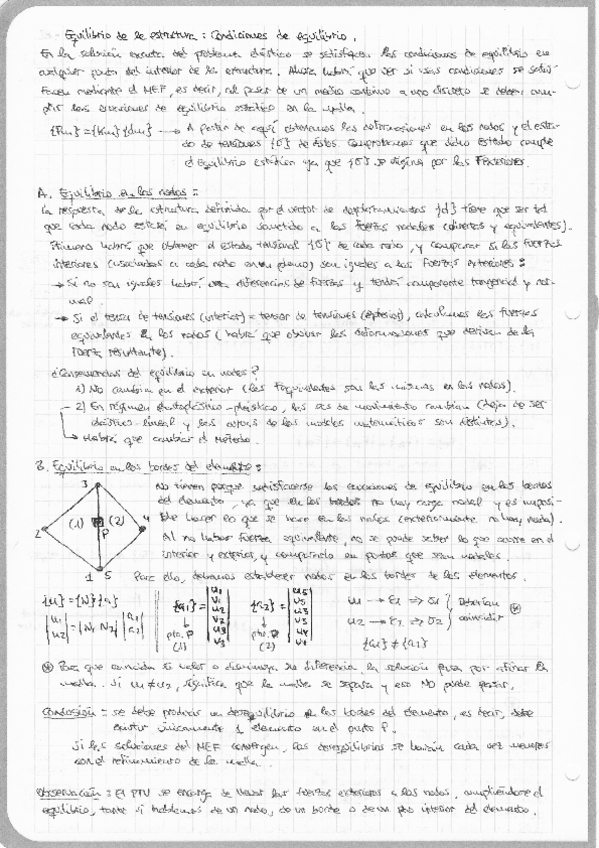 Equilibrio de la estructura: Condiciones de equilibrio.
En la solución exacta del problema elástico se satisfacen las condiciones de equilibrio en
cualquier punto del interior de la estructura. Ahora habrá que ver si esas condiciones se satis-
facen mediante el MEF, es decir, al pasar de un medio continuo a uno discreto se deben cum-
plir las ecuaciones de equilibrio estático en la malla.
A partir de aquí obtenemos las deformaciones en los nodos y el esta-
do de tensiones {σ} de éstos. Comprobamos que dicho estado cumple
el equilibrio estático ya que {σ} se origina por las Fexteriores.
A. Equilibrio en los nodos:
La respuesta de la estructura definida por el vector de desplazamientos {d} tiene que ser tal
que cada nodo estará en equilibrio sometido a las fuerzas nodales (directas y equivalentes).
Primero habrá que obtener el estado tensional {σ} de cada nodo, y comparar si las fuerzas
interiores (asociadas a cada nodo en un plano) son iguales a las fuerzas exteriores:
→ Si no son iguales habrá diferencias de fuerzas y tendrá componente tangencial y nor-
mal.
→ Si el tensor de tensiones (interior) = tensor de tensiones (exterior), calculamos las fuerzas
equivalentes en los nodos (habrá que observar las deformaciones que derivan de la
fuerza resultante).
¿Consecuencias del equilibrio en nodos?
1) No cambia en el exterior (las Fequivalentes son las mismas en los nodos).
2) En régimen elastoplástico-plástico, las ecs de movimiento cambian (deja de ser
elástico-lineal y las de los modelos matemáticos son distintas).
Habrá que cambiar el método.
B. Equilibrio en los bordes del elemento:
No tienen porque satisfacerse las ecuaciones de equilibrio en los bordes
del elemento, ya que en los bordes no hay carga nodal y es imposi-
ble hacer lo que se hace en los nodos (exteriormente no hay nada).
Al no haber fuerza equivalente, no se puede saber lo que ocurre en el
interior y exterior, y compararlo en puntos que sean nodales.
Para ello, debemos establecer nodos en los bordes de los elementos.
3
2 (1) (2) 4
P
1 5
Deberían
coincidir
pto. P
(1)
pto. P
(2)
Para que coincida su valor o disminuya su diferencia, la solución pasa por afinar la
malla. Si u₁≠u₂, significa que la malla se separa y eso NO puede pasar.
Conclusión: se debe producir un desequilibrio en los bordes del elemento, es decir, debe
existir únicamente 1 elemento en el punto P.
Si las soluciones del MEF convergen, los desequilibrios se harán cada vez menores
con el refinamiento de la malla.
Observación: El PTV se encarga de llevar las fuerzas exteriores a los nodos, cumpliéndose el
equilibrio, tanto si hablamos de un nodo, de un borde o de un pto interior del elemento.